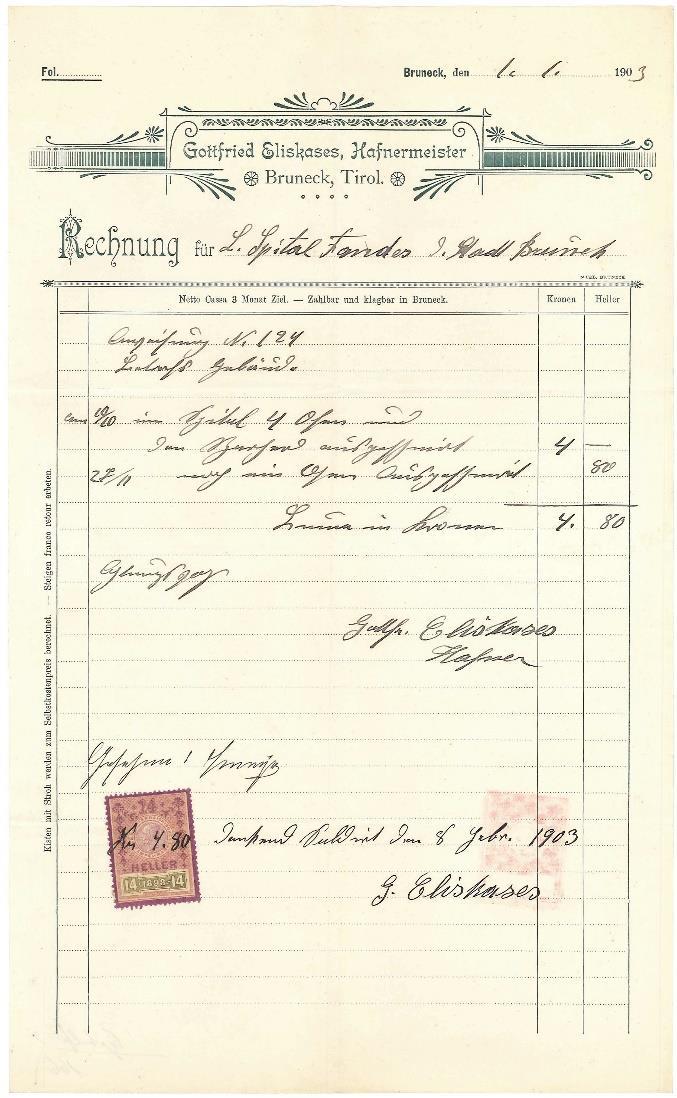 Fol.
Bruneck, den 1. 1. 1903
Gottfried Eliskases, Hafnermeister
Bruneck, Tirol.
Rechnung für L. Spital Fondes d. Stadt Bruneck
Netto Cassa 3 Monat Ziel. — Zahlbar und klagbar in Bruneck. Kronen Heller
Anweisung N. 124
Gebäude
am 10/10 im Spital 4 Ofen und
den Sparherd ausgeschmirt 4 —
27/11 noch ein Ofen Ausgeschmirt 80
Suma in Kronen 4. 80
Kisten mit Stroh werden zum Selbstkostenpreis berechnet. — Steigen franco retour arbeten.
Gottfr. Eliskases
Hafner
Gesehen:
14
HELLER
14 1898 14
Kr 4.80 dankend Saldirt den 8 Febr. 1903
G. Eliskases